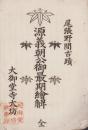 尾張野間古蹟
源義朝公御最期絵解 全
大御堂寺大坊